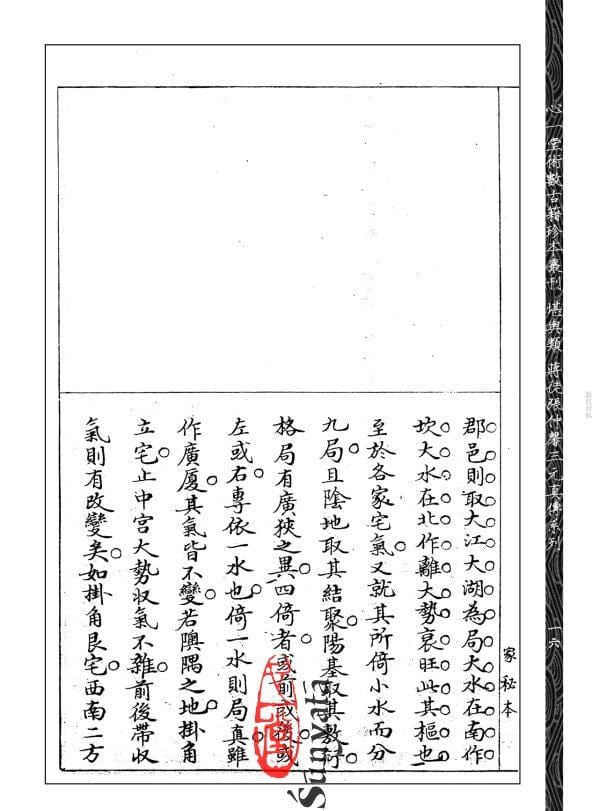 心一堂術數古籍珍本叢刊 堪輿類 蔣徒張仲馨三元真傳系列
一六
版权材料
家秘本
郡邑則取大江大湖為局大水在南作
坎大水在北作離大勢衰旺此其樞也
至於各家宅氣又就其所倚小水而分
九局且陰地取其結聚陽基取其敷衍
格局有廣狹之異四倚者或前或後或
左或右專依一水也倚一水則局真雖
作廣厦其氣皆不變若隩隅之地掛角
立宅止中宮大勢収氣不雜前後帶収
氣則有改變矣如掛角艮宅西南二方
心一堂
Sunyata